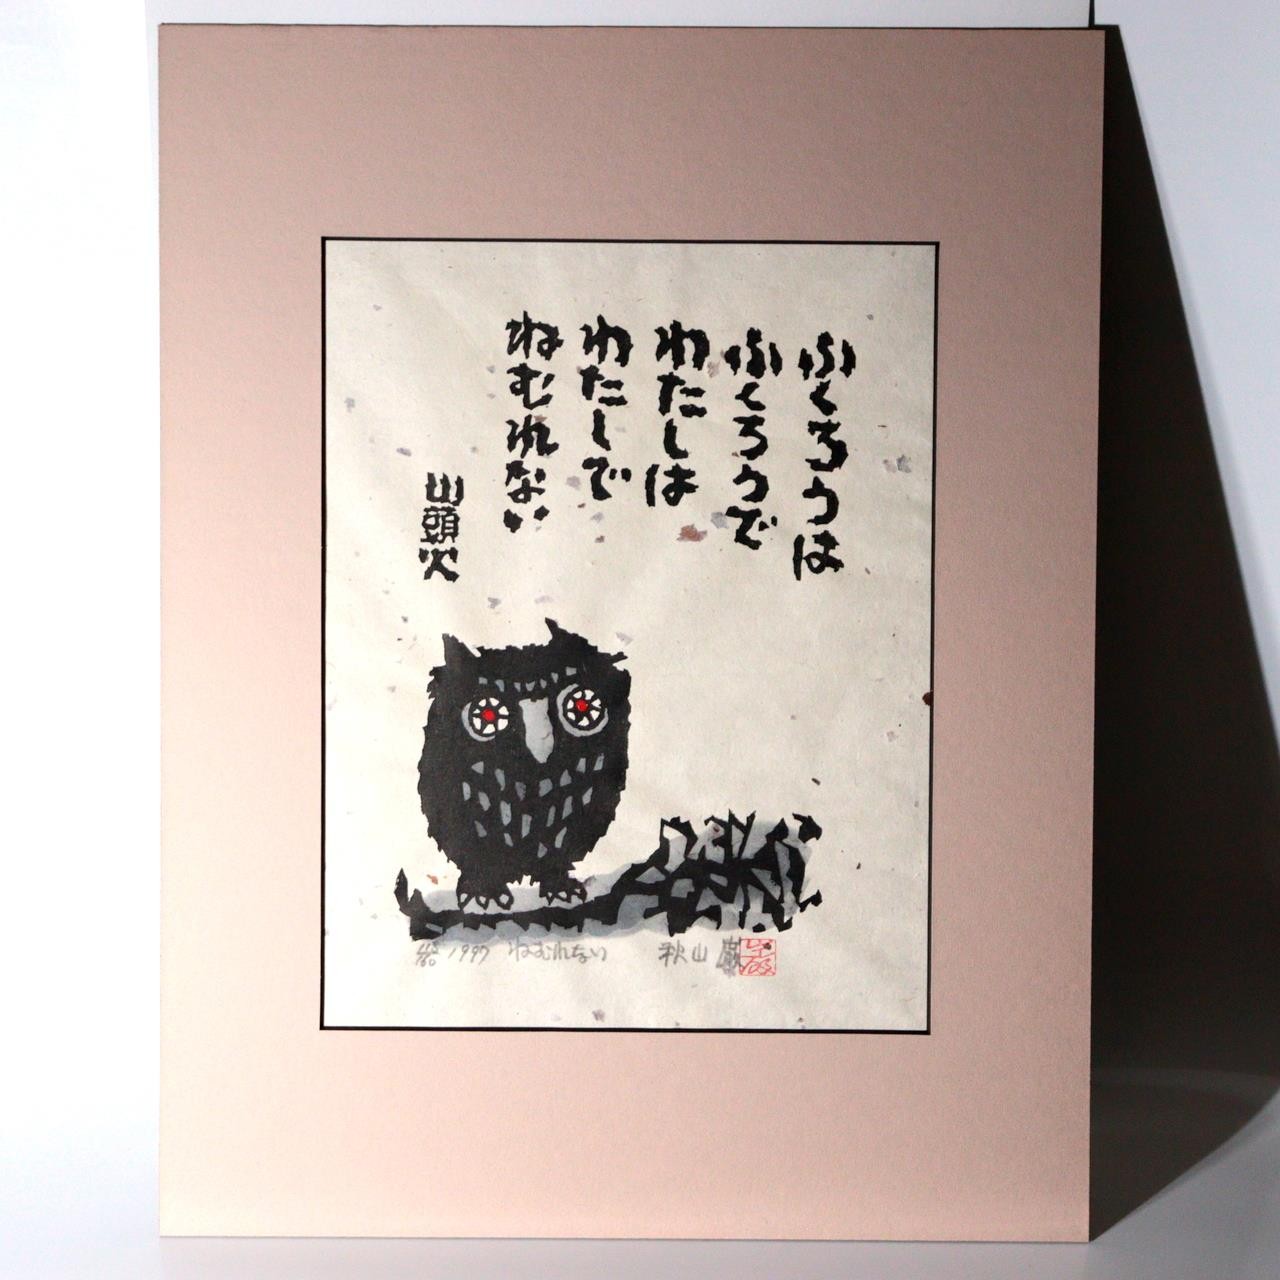 ふくろうは
ふくろうで
わたしは
わたしで
ねむれない
山頭火
1997 ねむれない 秋山巖